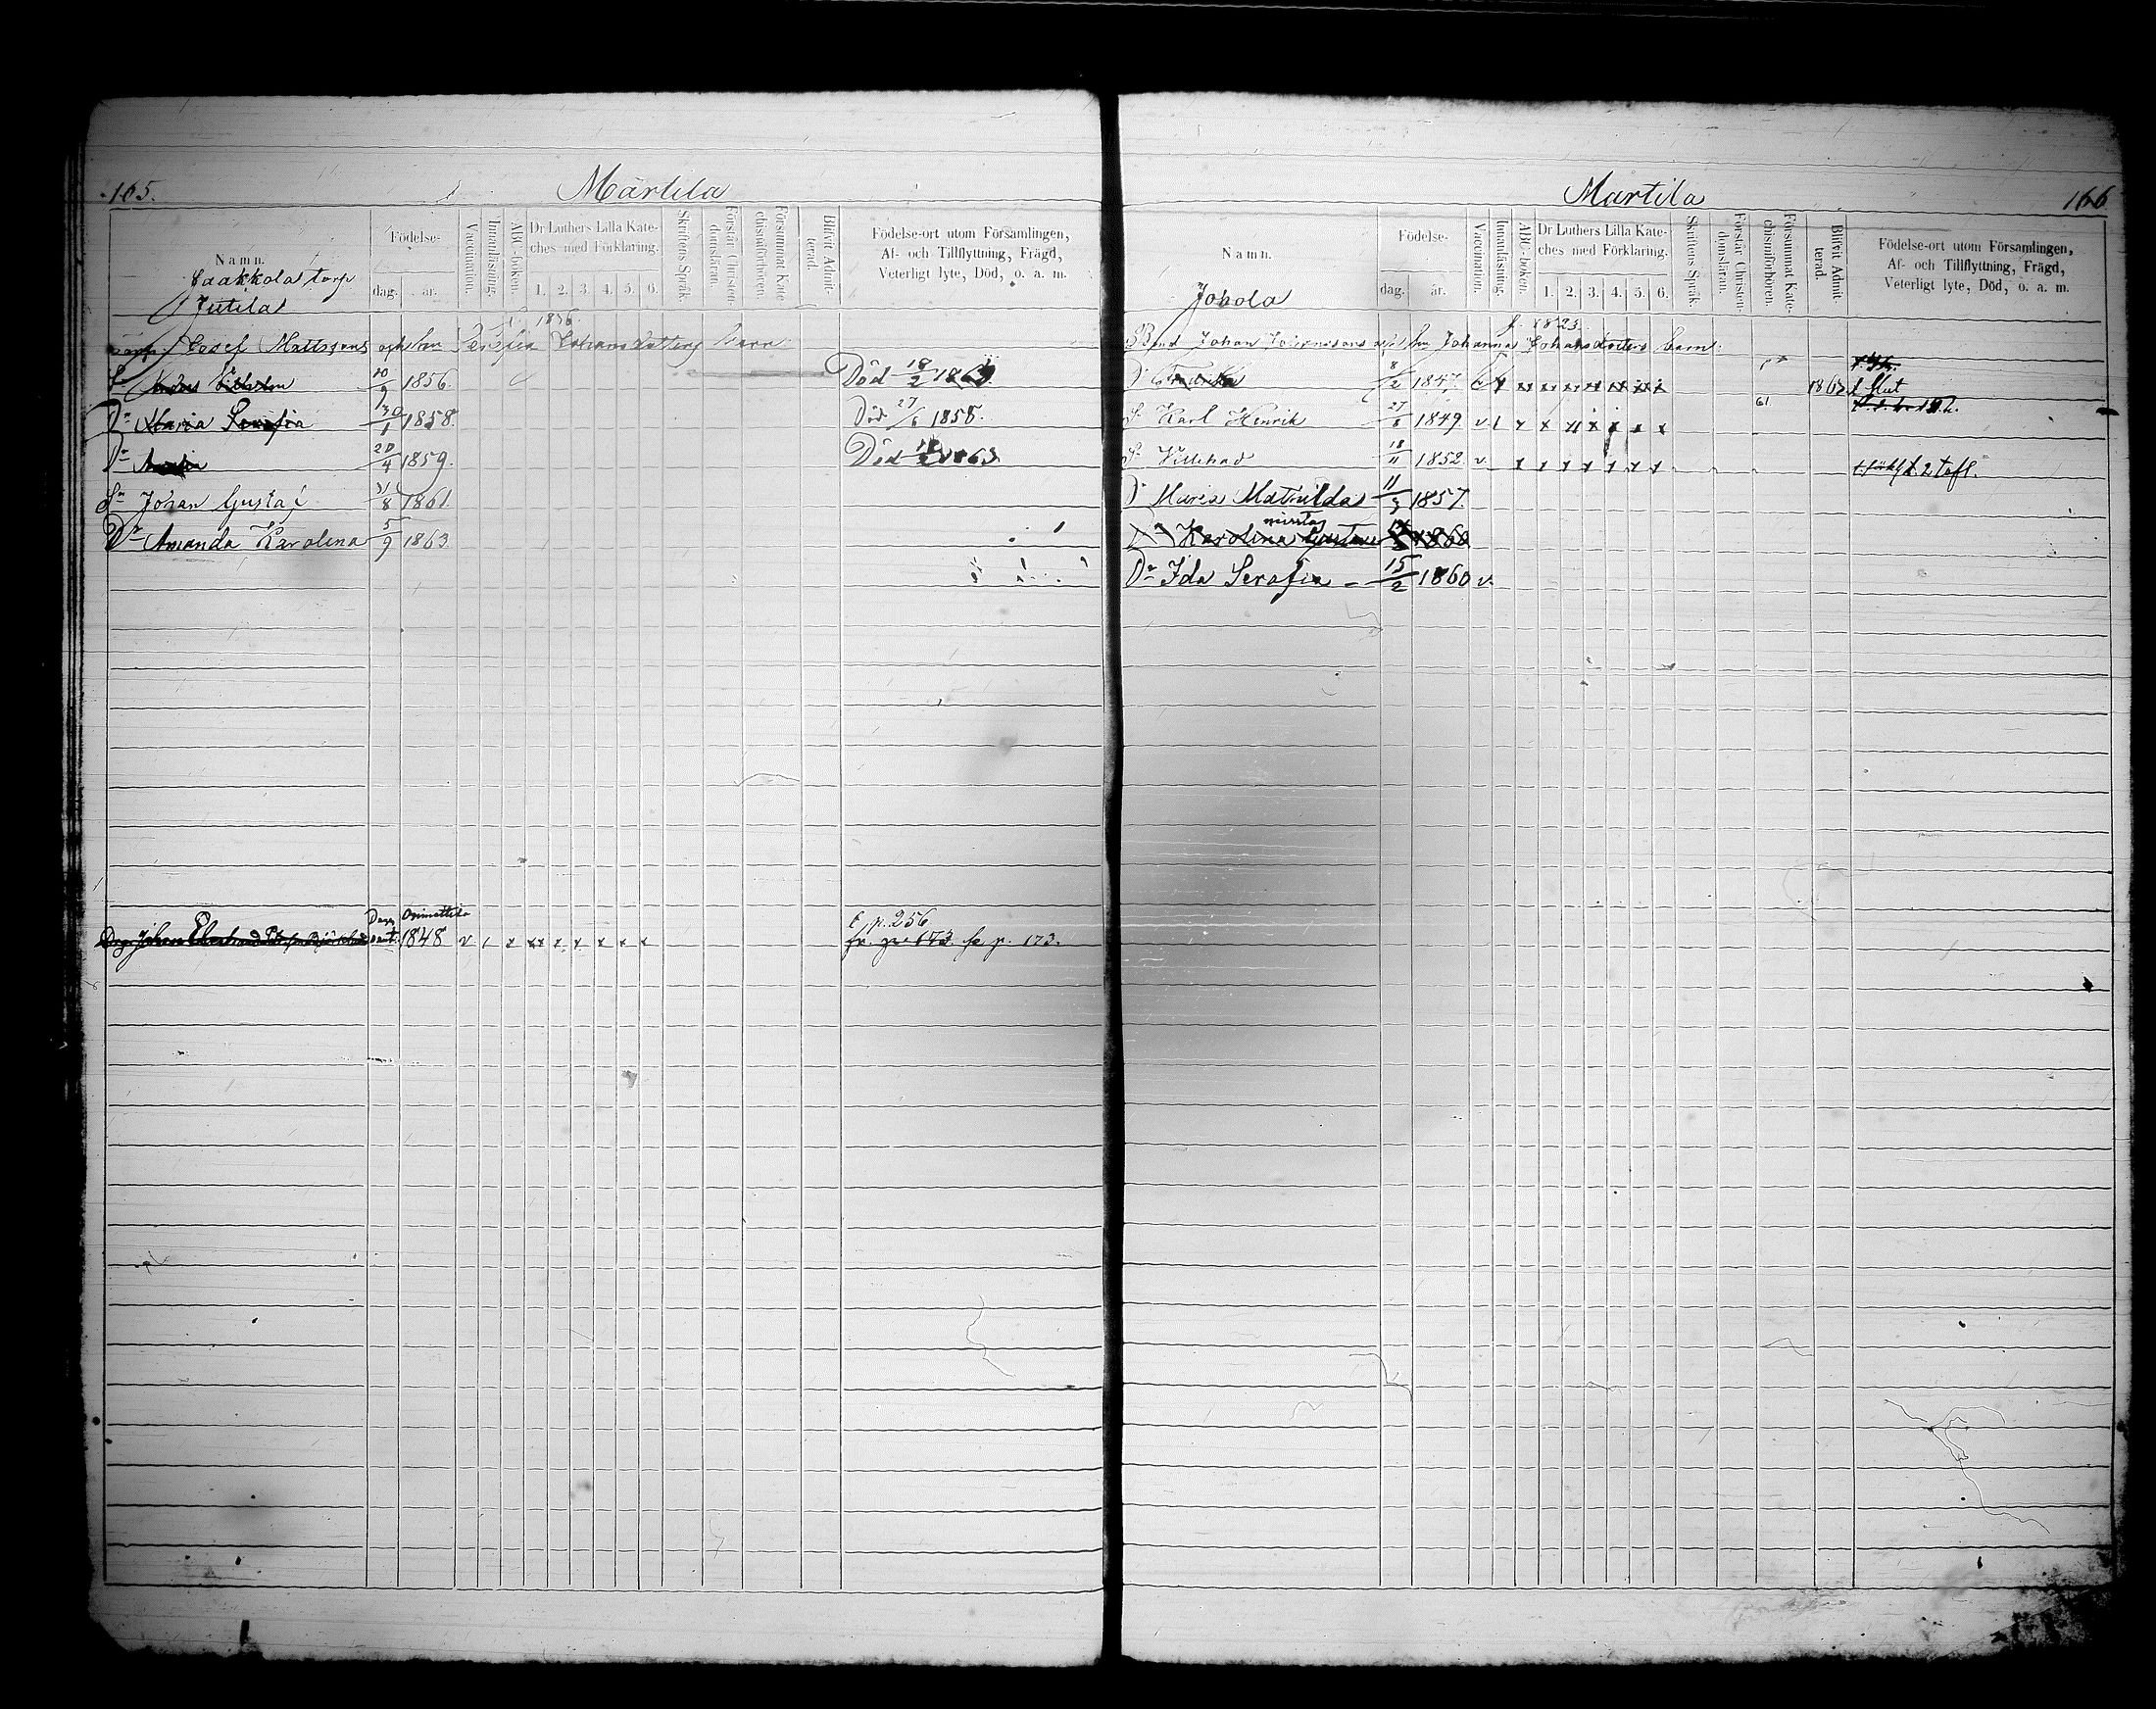 165.
Märtila
Namn.
Födelse-
dag.
år.
Vaccination.
Innanläsning.
ABC-boken.
Dr Luthers Lilla Kate-
ches med Förklaring.
1. 2. 3. 4. 5. 6.
Skriftens Språk.
Förstår Christen-
domsläran.
Försummat Kate-
chismiförhören.
Blifvit Admit-
terad.
Födelse-ort utom Församlingen,
Af- och Tillflyttning, Frägd,
Veterligt lyte, Död, o. a. m.
Jaakkola torp
Jutila
f. 1836.
Josef Mattssons och Serefia Johansdotters barn
Sn Vilhelm 10/9 1856. Död 18/2 1863
Dr Maria Serafia 30/1 1858. Död 27/6 1858.
Dr 20/4 1859. Död 1863
Sn Johan Gustaf 31/8 1861.
Dr Amanda Karolina 5/9 1863
Orimattila
Johan 1848 v x xx x x x x x
p. 256
fr. p. 173. se p. 173.
Martila
166
Namn.
Födelse-
dag.
år.
Vaccination.
Innanläsning.
ABC-boken.
Dr Luthers Lilla Kate-
ches med Förklaring.
1. 2. 3. 4. 5. 6.
Skriftens Språk.
Förstår Christen-
domsläran.
Försummat Kate-
chismiförhören.
Blifvit Admit-
terad.
Födelse-ort utom Församlingen,
Af- och Tillflyttning, Frägd,
Veterligt lyte, Död, o. a. m.
Johola
f. 1823.
Bond Johan Johanna Johansdotters barn:
Dr Fredrika 8/2 1847.
Sn Karl Henrik 27/8 1849 v x x x x x x 61
Sn Villehad 18/11 1852. v. x x x x x x x 2 tafl.
Dr Maria Mathilda 11/3 1857.
misstag
Dr Karolina Gustava 1860
Dr Ida Serafia 15/2 1860 v.